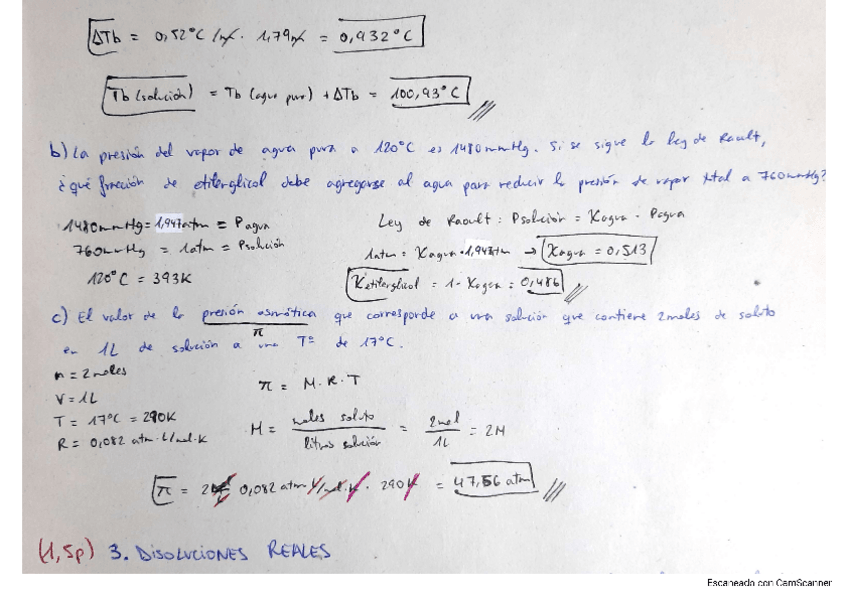 ΔTb = 0,52°C/m · 1,79m = 0,932°C
Tb (solución) = Tb (agua pura) + ΔTb = 100,93°C
b) La presión del vapor de agua pura a 120°C es 1480mmHg. Si se sigue la ley de Raoult,
¿qué fracción de etilenglicol debe agregarse al agua para reducir la presión de vapor total a 760mmHg?
1480mmHg = 1,947atm = Pagua
Ley de Raoult: Psolución = Xagua · Pagua
760mmHg = 1atm = Psolución
1atm = Xagua · 1,947atm → Xagua = 0,513
120°C = 393K
Xetilenglicol = 1 - Xagua = 0,486
c) El valor de la presión osmótica que corresponde a una solución que contiene 2moles de soluto
π
en 1L de solución a una Tª de 17°C.
n = 2moles
V = 1L
π = M·R·T
T = 17°C = 290K
R = 0,082 atm·L/mol·K
M = moles soluto / litros solución = 2mol / 1L = 2M
π = 2M 0,082 atm·L/mol·K · 290K = 47,56 atm
(1,5p) 3. DISOLUCIONES REALES
Escaneado con CamScanner